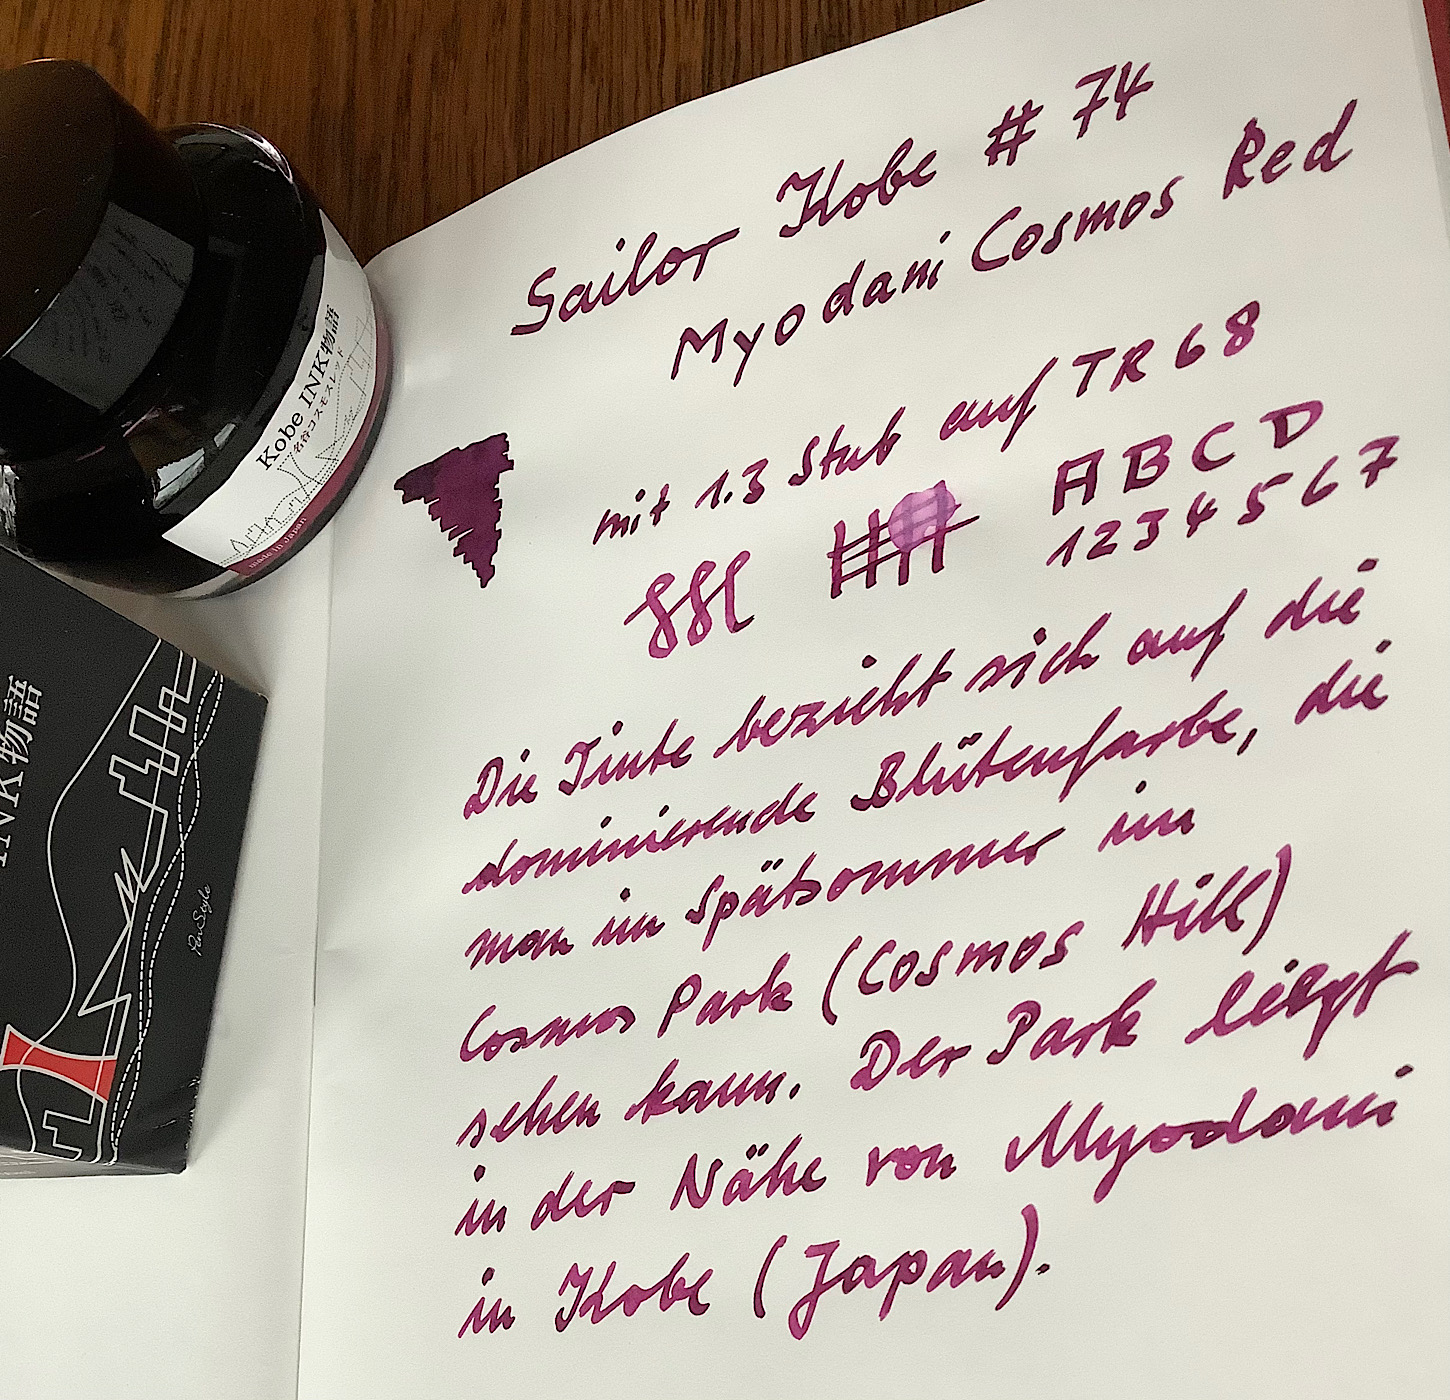 Sailor Kobe # 74
Myodani Cosmos Red
mit 1.3 Stub auf TR 68
A B C D
1 2 3 4 5 6 7
Die Tinte bezieht sich auf die
dominierende Blütenfarbe, die
man im Spätsommer im
Cosmos Park (Cosmos Hill)
sehen kann. Der Park liegt
in der Nähe von Myodani
in Kobe (Japan).
Kobe INK物語
名谷コスモスレッド
made in Japan
INK物語
PenStyle